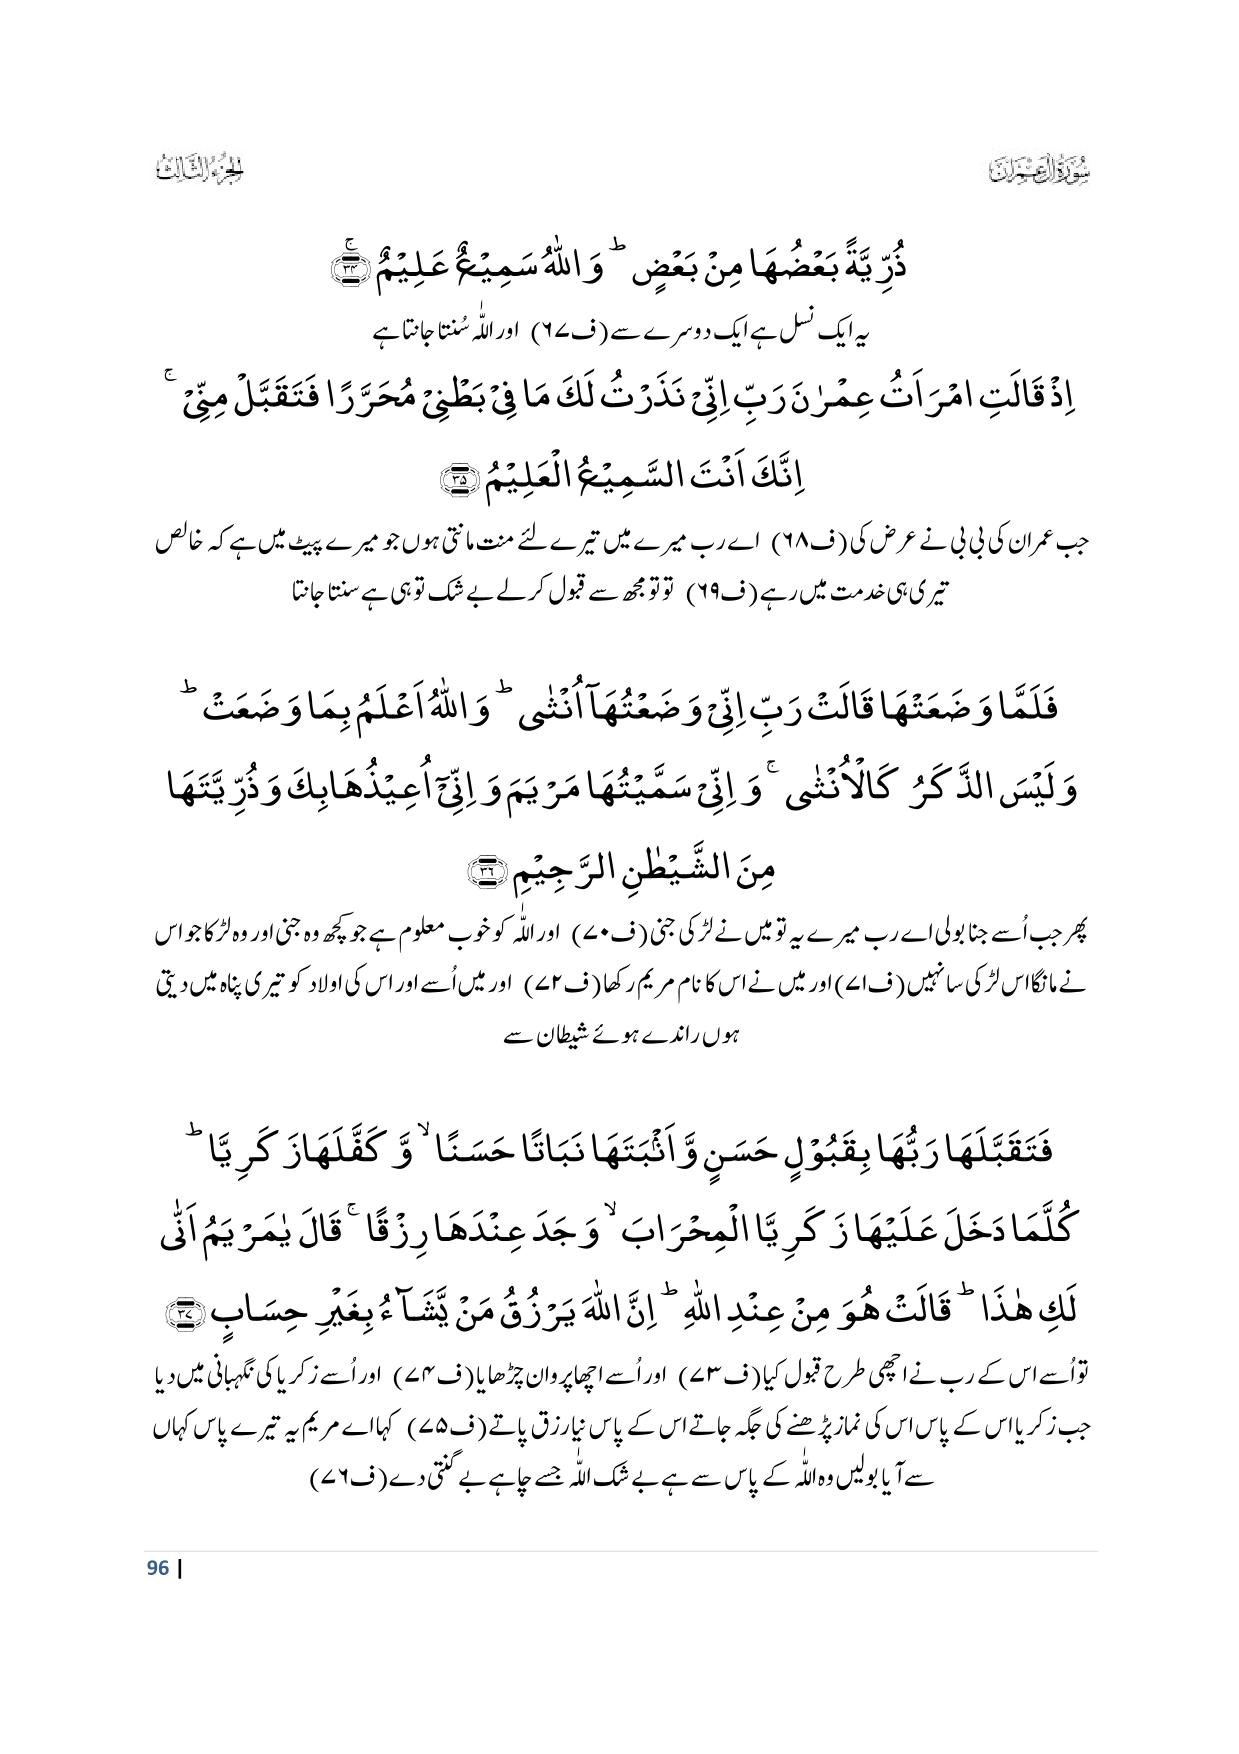 سُوْرَۃُ اٰلِ عِمْرٰن
اَلْجُزْءُ الثَّالِثُ
ذُرِّیَّۃًۢ بَعْضُهَا مِنْۢ بَعْضٍ ؕ وَ اللّٰهُ سَمِیْعٌ عَلِیْمٌ ۚ﴿۳۴﴾
یہ ایک نسل ہے ایک دوسرے سے (ف۶۷) اور اللّٰہ سُنتا جانتا ہے
اِذْ قَالَتِ امْرَاَتُ عِمْرٰنَ رَبِّ اِنِّیْ نَذَرْتُ لَکَ مَا فِیْ بَطْنِیْ مُحَرَّرًا فَتَقَبَّلْ مِنِّیْ ۚ
اِنَّکَ اَنْتَ السَّمِیْعُ الْعَلِیْمُ ﴿۳۵﴾
جب عمران کی بی بی نے عرض کی (ف۶۸) اے رب میرے میں تیرے لئے منت مانتی ہوں جو میرے پیٹ میں ہے کہ خالص
تیری ہی خدمت میں رہے (ف۶۹) تو تو مجھ سے قبول کرلے بے شک تو ہی ہے سنتا جانتا
فَلَمَّا وَضَعَتْهَا قَالَتْ رَبِّ اِنِّیْ وَضَعْتُهَاۤ اُنْثٰی ؕ وَ اللّٰهُ اَعْلَمُ بِمَا وَضَعَتْ ؕ
وَلَیْسَ الذَّکَرُ کَالْاُنْثٰی ۚ وَ اِنِّیْ سَمَّیْتُهَا مَرْیَمَ وَ اِنِّیْۤ اُعِیْذُهَا بِکَ وَذُرِّیَّتَهَا
مِنَ الشَّیْطٰنِ الرَّجِیْمِ ﴿۳۶﴾
پھر جب اُسے جنا بولی اے رب میرے یہ تو میں نے لڑکی جنی (ف۷۰) اور اللّٰہ کو خوب معلوم ہے جو کچھ وہ جنی اور وہ لڑکا جو اس
نے مانگا اس لڑکی سا نہیں (ف۷۱) اور میں نے اس کا نام مریم رکھا (ف۷۲) اور میں اُسے اور اس کی اولاد کو تیری پناہ میں دیتی
ہوں راندے ہوئے شیطان سے
فَتَقَبَّلَهَا رَبُّهَا بِقَبُوْلٍ حَسَنٍ وَّ اَنْۢبَتَهَا نَبَاتًا حَسَنًا ۙ وَّ کَفَّلَهَا زَکَرِیَّا ؕ
کُلَّمَا دَخَلَ عَلَیْهَا زَکَرِیَّا الْمِحْرَابَ ۙ وَجَدَ عِنْدَهَا رِزْقًا ۚ قَالَ یٰمَرْیَمُ اَنّٰی
لَکِ هٰذَا ؕ قَالَتْ هُوَ مِنْ عِنْدِ اللّٰهِ ؕ اِنَّ اللّٰهَ یَرْزُقُ مَنْ یَّشَآءُ بِغَیْرِ حِسَابٍ ﴿۳۷﴾
تو اُسے اس کے رب نے اچھی طرح قبول کیا (ف۷۳) اور اُسے اچھا پروان چڑھایا (ف۷۴) اور اُسے زکریا کی نگہبانی میں دیا
جب زکریا اس کے پاس اس کی نماز پڑھنے کی جگہ جاتے اس کے پاس نیا رزق پاتے (ف۷۵) کہا اے مریم یہ تیرے پاس کہاں
سے آیا بولیں وہ اللّٰہ کے پاس سے ہے بے شک اللّٰہ جسے چاہے بے گنتی دے (ف۷۶)
96 |